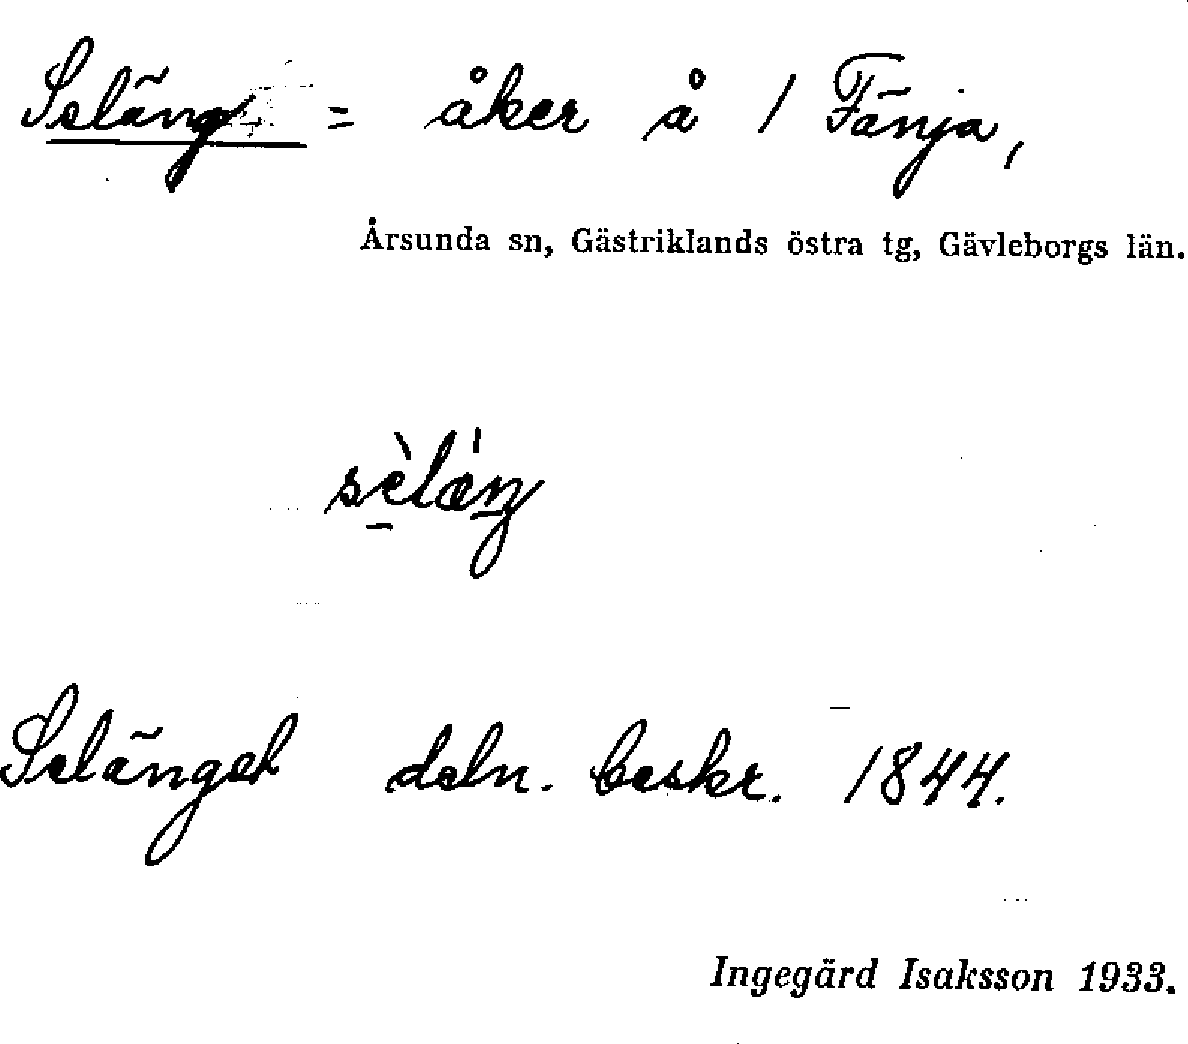 Seläng = åker å 1 Fänja,
Årsunda sn, Gästriklands östra tg, Gävleborgs län.
sèlǽŋ
Selänget deln. beskr. 1844.
Ingegärd Isaksson 1933.